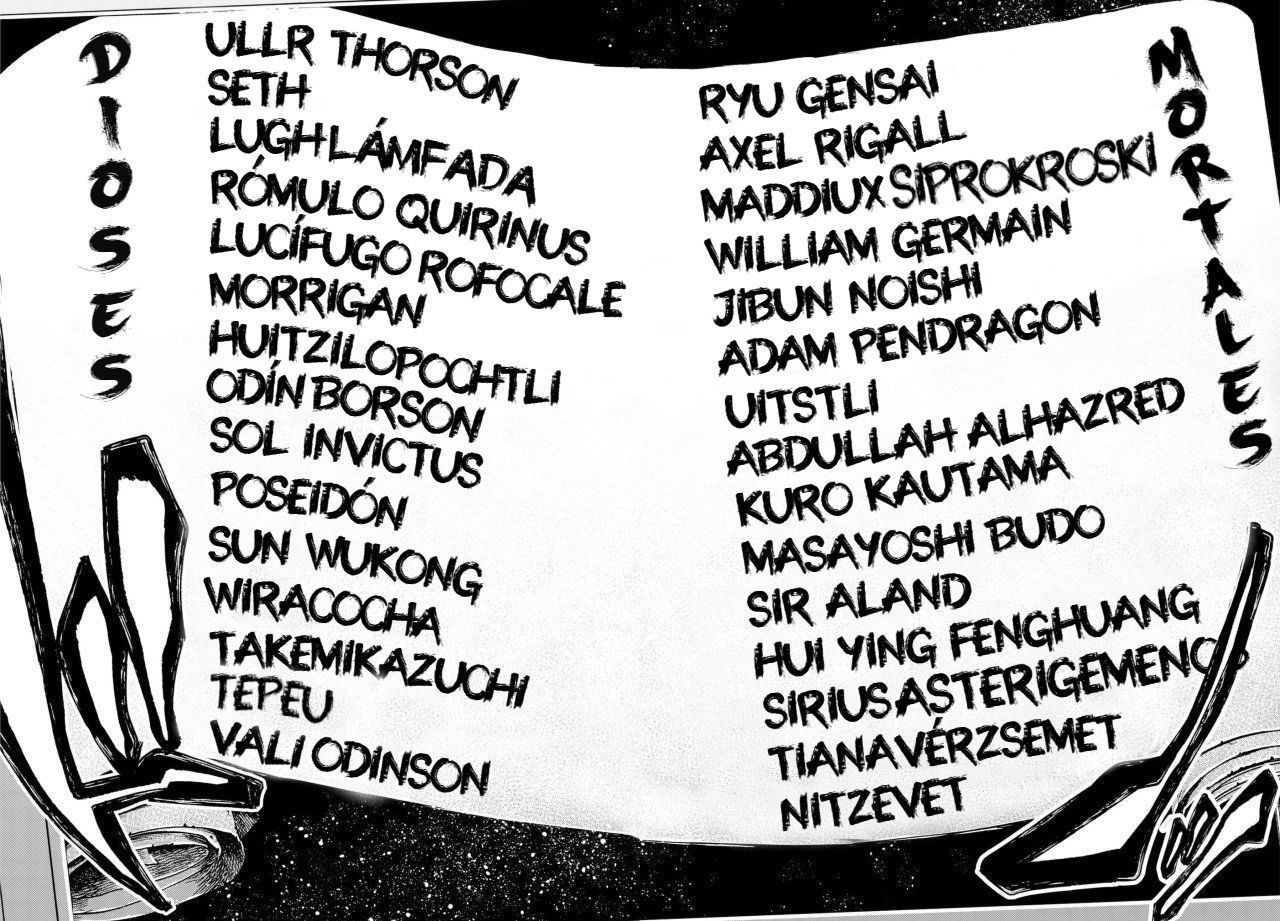 DIOSES
ULLR THORSON
SETH
LUGH LÁMFADA
RÓMULO QUIRINUS
LUCÍFUGO ROFOCALE
MORRIGAN
HUITZILOPOCHTLI
ODÍN BORSON
SOL INVICTUS
POSEIDÓN
SUN WUKONG
WIRACOCHA
TAKEMIKAZUCHI
TEPEU
VALI ODINSON
MORTALES
RYU GENSAI
AXEL RIGALL
MADDIUX SIPROKROSKI
WILLIAM GERMAIN
JIBUN NOISHI
ADAM PENDRAGON
UITSTLI
ABDULLAH ALHAZRED
KURO KAUTAMA
MASAYOSHI BUDO
SIR ALAND
HUI YING FENGHUANG
SIRIUS ASTERIGEMENOS
TIANA VÉRZSEMET
NITZEVET